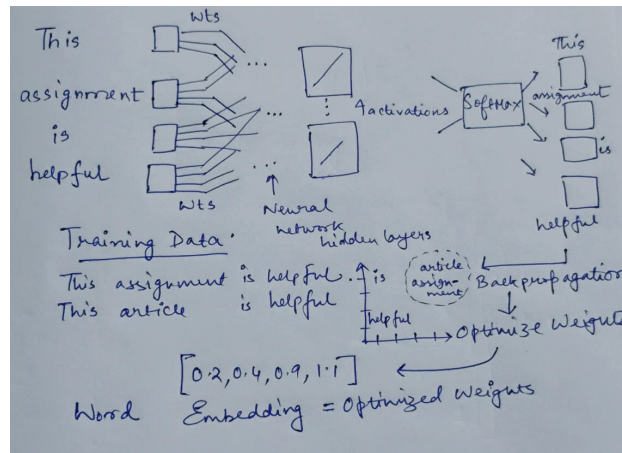 wts
This
assignment
is
helpful
wts
...
...
...
4 activations
Neural
network
hidden layers
Softmax
This
assignment
is
helpful
Training Data.
This assignment is helpful.
This article is helpful
is
helpful
article
assign-
ment
Backpropagation
Optimize Weights
[0.2, 0.4, 0.9, 1.1]
Word Embedding = Optimized Weights